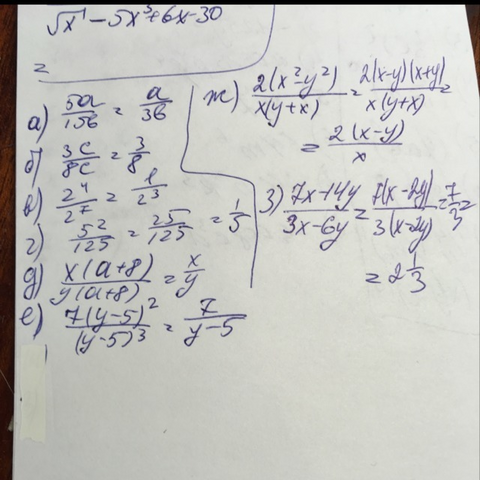 √x¹ - 5x³ + 6x - 30
=
а) 5a/15b = a/3b
б) 3c/8c = 3/8
в) 2⁴/2⁷ = 1/2³
г) 5²/125 = 25/125 = 1/5
д) x(a+8)/y(a+8) = x/y
е) 7(y-5)²/(y-5)³ = 7/y-5
ж) 2(x²-y²)/x(y+x) = 2(x-y)(x+y)/x(y+x) =
= 2(x-y)/x
з) 7x-14y/3x-6y = 7(x-2y)/3(x-2y) = 7/3 =
= 2 1/3